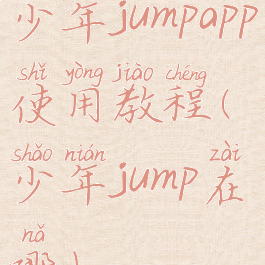 少年jumpapp
shǐ yòng jiào chéng
使用教程(
shǎo nián zài
少年jump在
nǎ
哪)